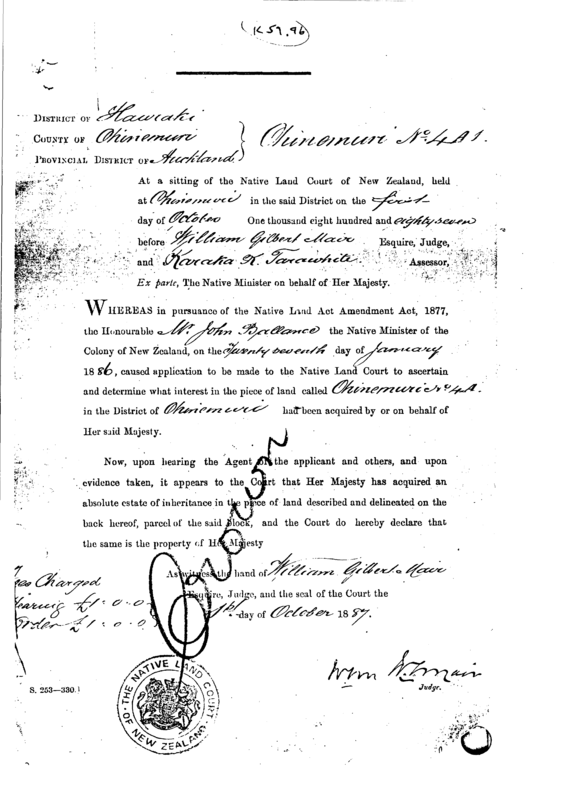 (K 57.96)
DISTRICT OF Hauraki
COUNTY OF Ohinemuri
PROVINCIAL DISTRICT OF Auckland
Ohinemuri No 4A1.
At a sitting of the Native Land Court of New Zealand, held
at Ohinemuri in the said District on the first
day of October One thousand eight hundred and eighty seven
before William Gilbert Mair Esquire, Judge,
and Karaka Tarawhiti Assessor,
Ex parte, The Native Minister on behalf of Her Majesty.
WHEREAS in pursuance of the Native Land Act Amendment Act, 1877,
the Honourable Mr. John Ballance the Native Minister of the
Colony of New Zealand, on the Twenty seventh day of January
1886, caused application to be made to the Native Land Court to ascertain
and determine what interest in the piece of land called Ohinemuri No 4A.
in the District of Ohinemuri had been acquired by or on behalf of
Her said Majesty.
Now, upon hearing the Agent of the applicant and others, and upon
evidence taken, it appears to the Court that Her Majesty has acquired an
absolute estate of inheritance in the piece of land described and delineated on the
back hereof, parcel of the said Block, and the Court do hereby declare that
the same is the property of Her Majesty
Crown
As witness the hand of William Gilbert Mair
Esquire, Judge, and the seal of the Court the
1st day of October 1887.
Charged
£1:0:0
£1:0:0
Wm G. Mair
Judge.
S. 253—330.
THE NATIVE LAND COURT OF NEW ZEALAND